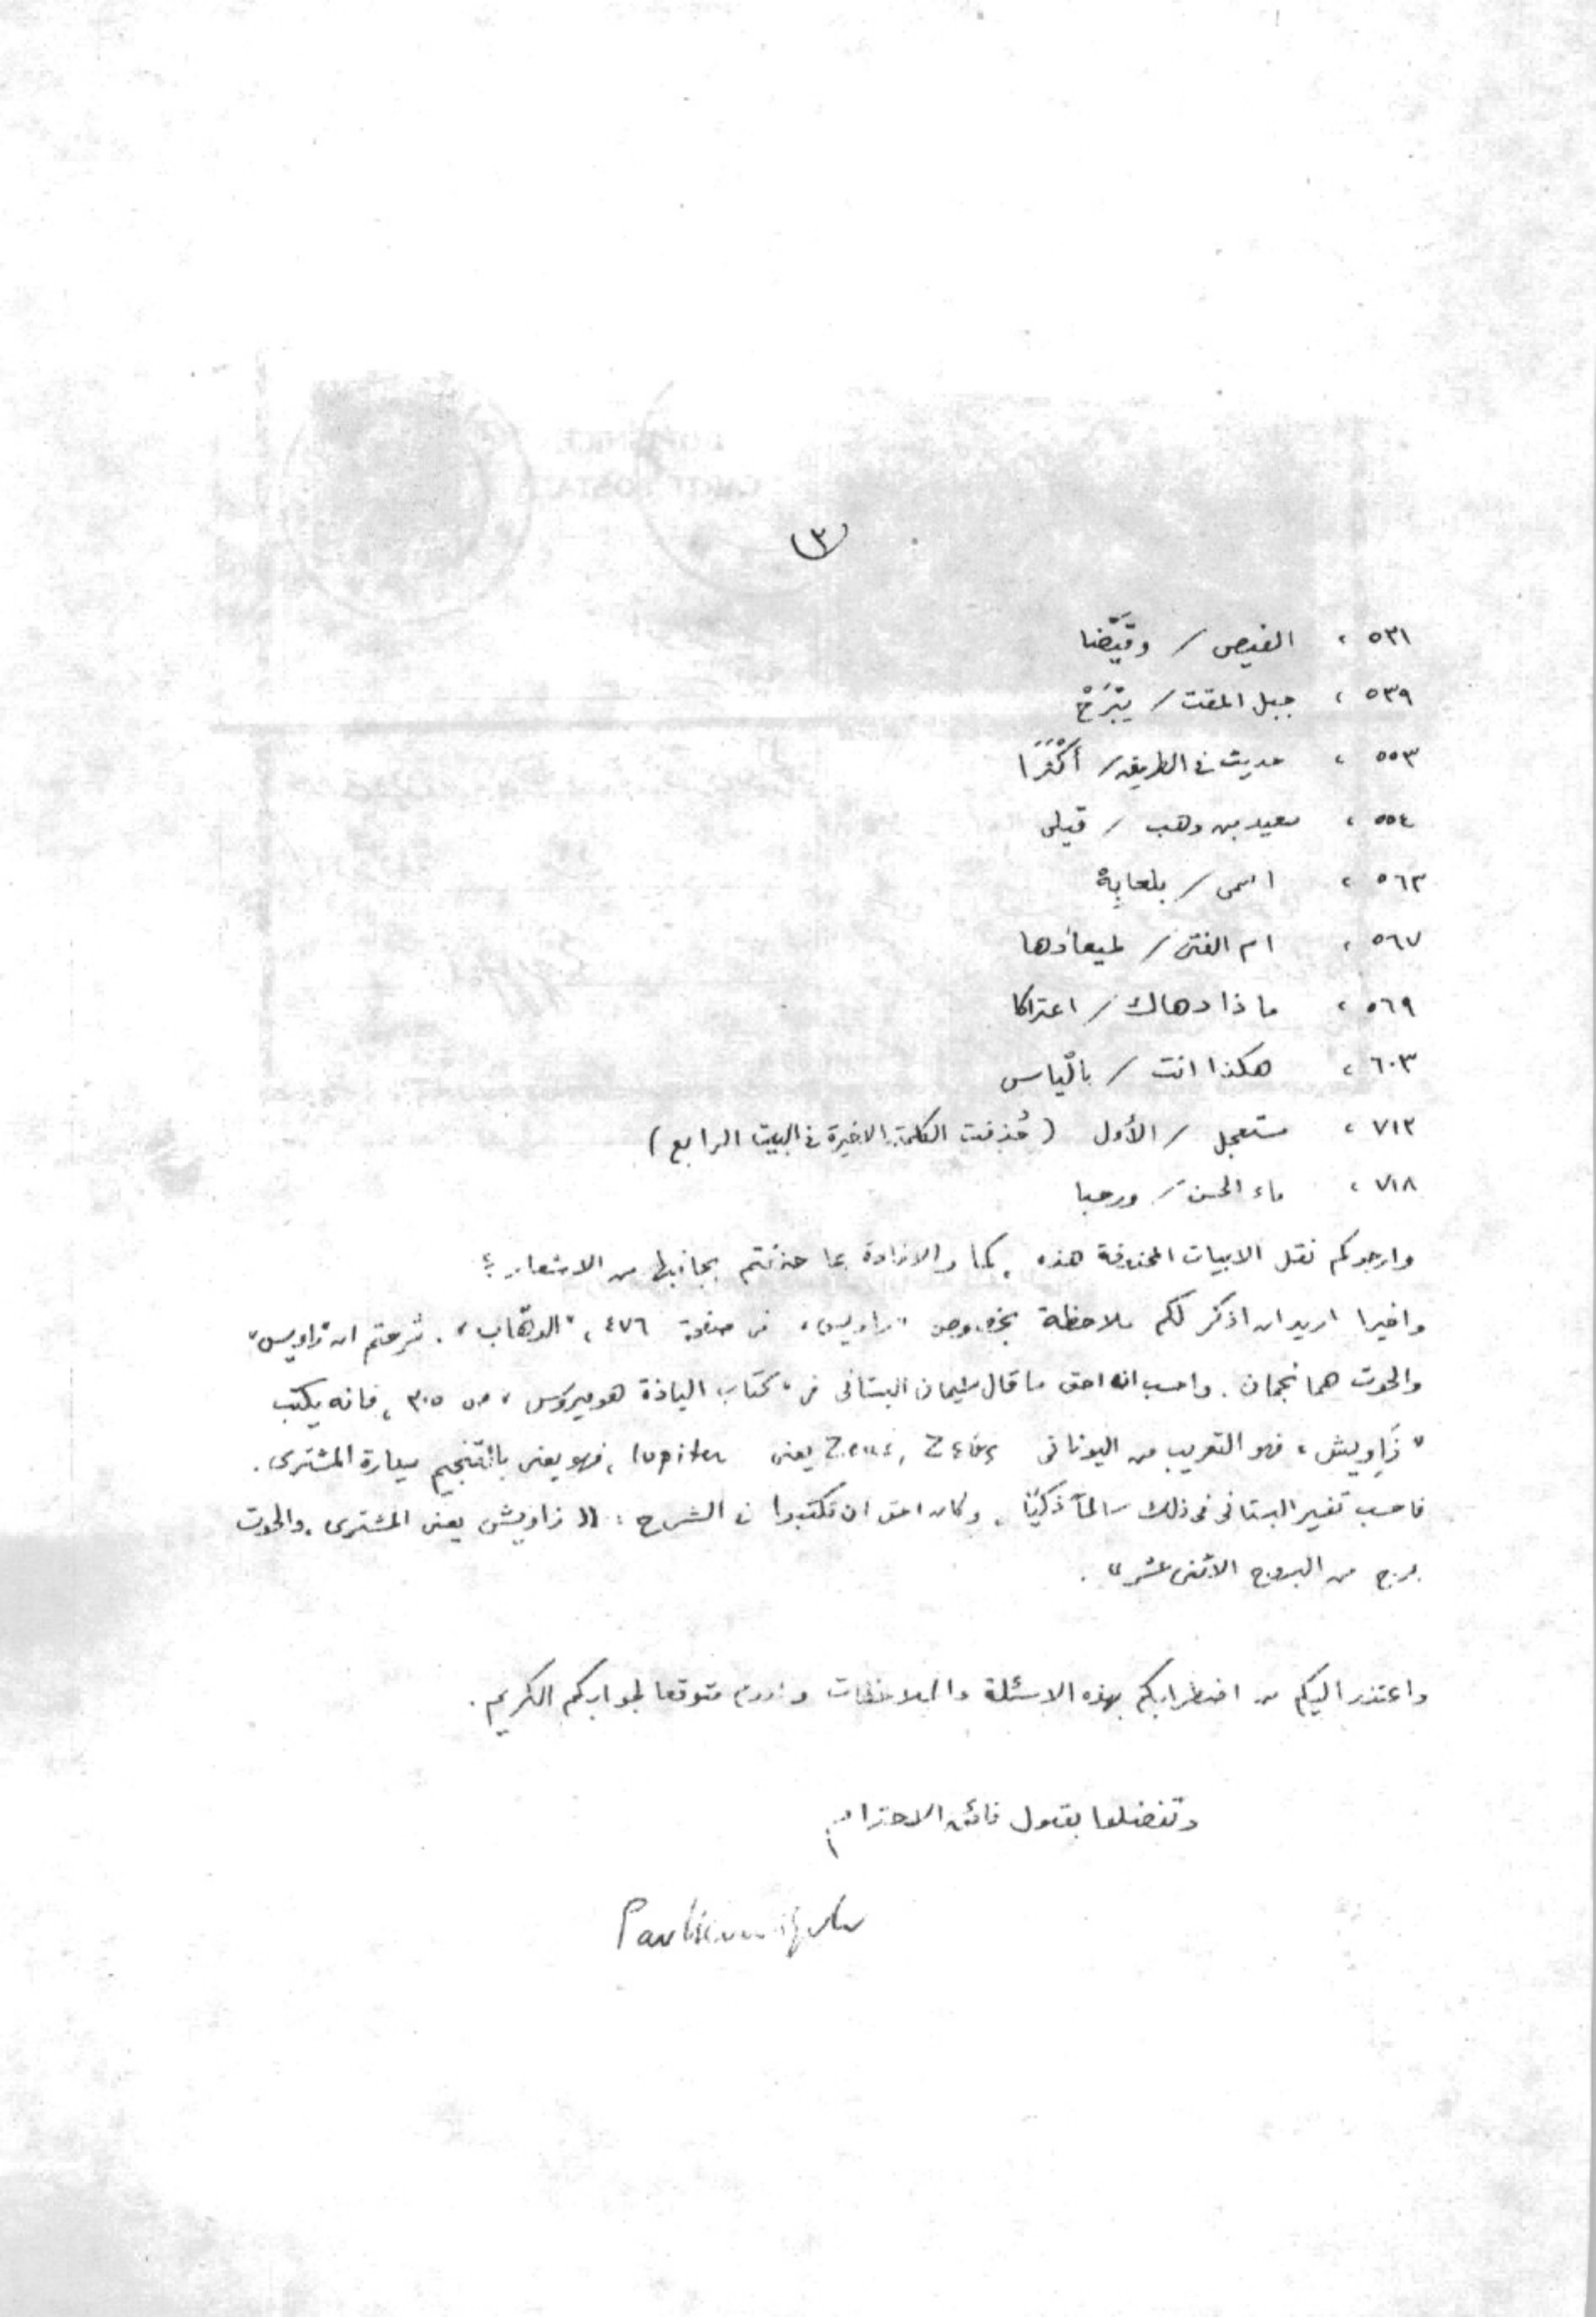 (٣)
٥٣١ ، القميص / وقَيَّضنا
٥٣٩ ، جبل المقت / يَبْرَحْ
٥٥٣ ، حديث في الطريق / أَكْثَرَا
٥٥٤ ، سعيد بن وهب / قيلى
٥٦٣ ، اسمى / بلعابِهْ
٥٦٧ ، ام الفتى / لميعادها
٥٦٩ ، ماذا دهاك / اعتراكا
٦٠٣ ، هكذا انت / بالْياس
٧١٣ ، مستعجل / الأول (حُذفت الكلمة الاخيرة في البيت الرابع)
٧١٨ ، ماء الحسن / ورحبا
وارجوكم نقل الابيات المحذوفة هذه ، كما والافادة عما حذفتم بجانبها من الاشعار ؛
واخيرا اريد ان اذكر لكم ملاحظة بخصوص "زاويس" في صفحة ٤٧٦ ، "الوهّاب" . شرحتم ان "زاويس"
والحوت هما نجمان . واحسب انه احق ما قال سليمان البستانى فى "كتاب الياذة هوميروس" ص ٣٠٥ ، فانه يكتب
"زَاويش" فهو التعريب من اليونانى Zeus, Ζεύς يعنى Iupiter ، فهو يعنى بالتنجيم سيارة المشترى .
فاحسب تفسير البستانى فى ذلك سالماً ذكيًّا ، وكان احق ان تكتبوا في الشرح : "زاويش يعنى المشترى ، والحوت
برج من البروج الاثنى عشر" .
واعتذر اليكم من اضطرابكم بهذه الاسئلة والملاحظات ودوم متوقعا لجوابكم الكريم .
وتفضلوا بقبول فائق الاحترام